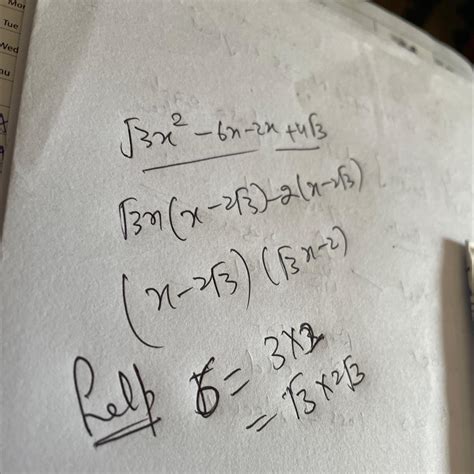 Mon
Tue
Wed
√3x² - 6x - 2x + 4√3
√3x(x - 2√3) - 2(x - 2√3)
(x - 2√3) (√3x - 2)
Help 6 = 3×2
= √3×2√3